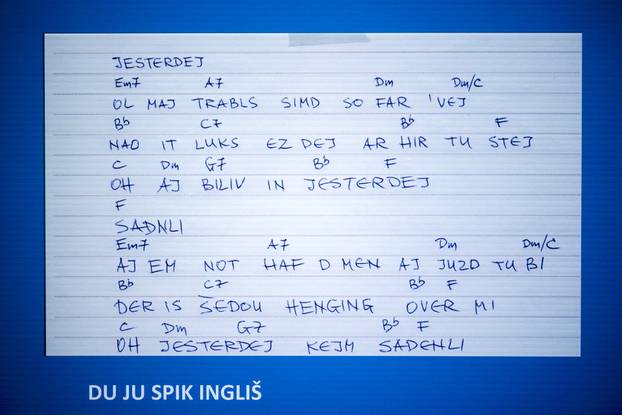 JESTERDEJ
Em7 A7 Dm Dm/C
OL MAJ TRABLS SIMD SO FAR 'VEJ
Bb C7 Bb F
NAO IT LUKS EZ DEJ AR HIR TU STEJ
C Dm G7 Bb F
OH AJ BILIV IN JESTERDEJ
F
SADNLI
Em7 A7 Dm Dm/C
AJ EM NOT HAF D MEN AJ JUZD TU BI
Bb C7 Bb F
DER IS ŠEDOU HENGING OVER MI
C Dm G7 Bb F
OH JESTERDEJ KEJM SADENLI
DU JU SPIK INGLIŠ